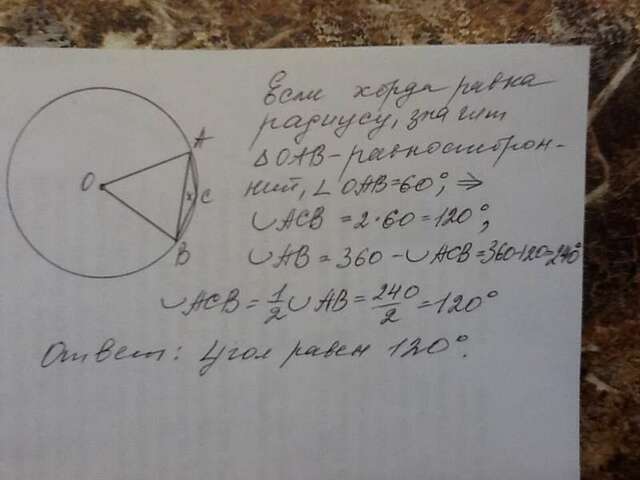 Если хорда равна
радиусу, значит
△OAB – равносторон-
ний, ∠OAB=60°; ⇒
∪ACB = 2·60=120°;
∪AB = 360 – ∪ACB=360-120=240°
∪ACB = 1/2 ∪AB = 240/2 = 120°
Ответ: Угол равен 120°.
O
A
x
C
B